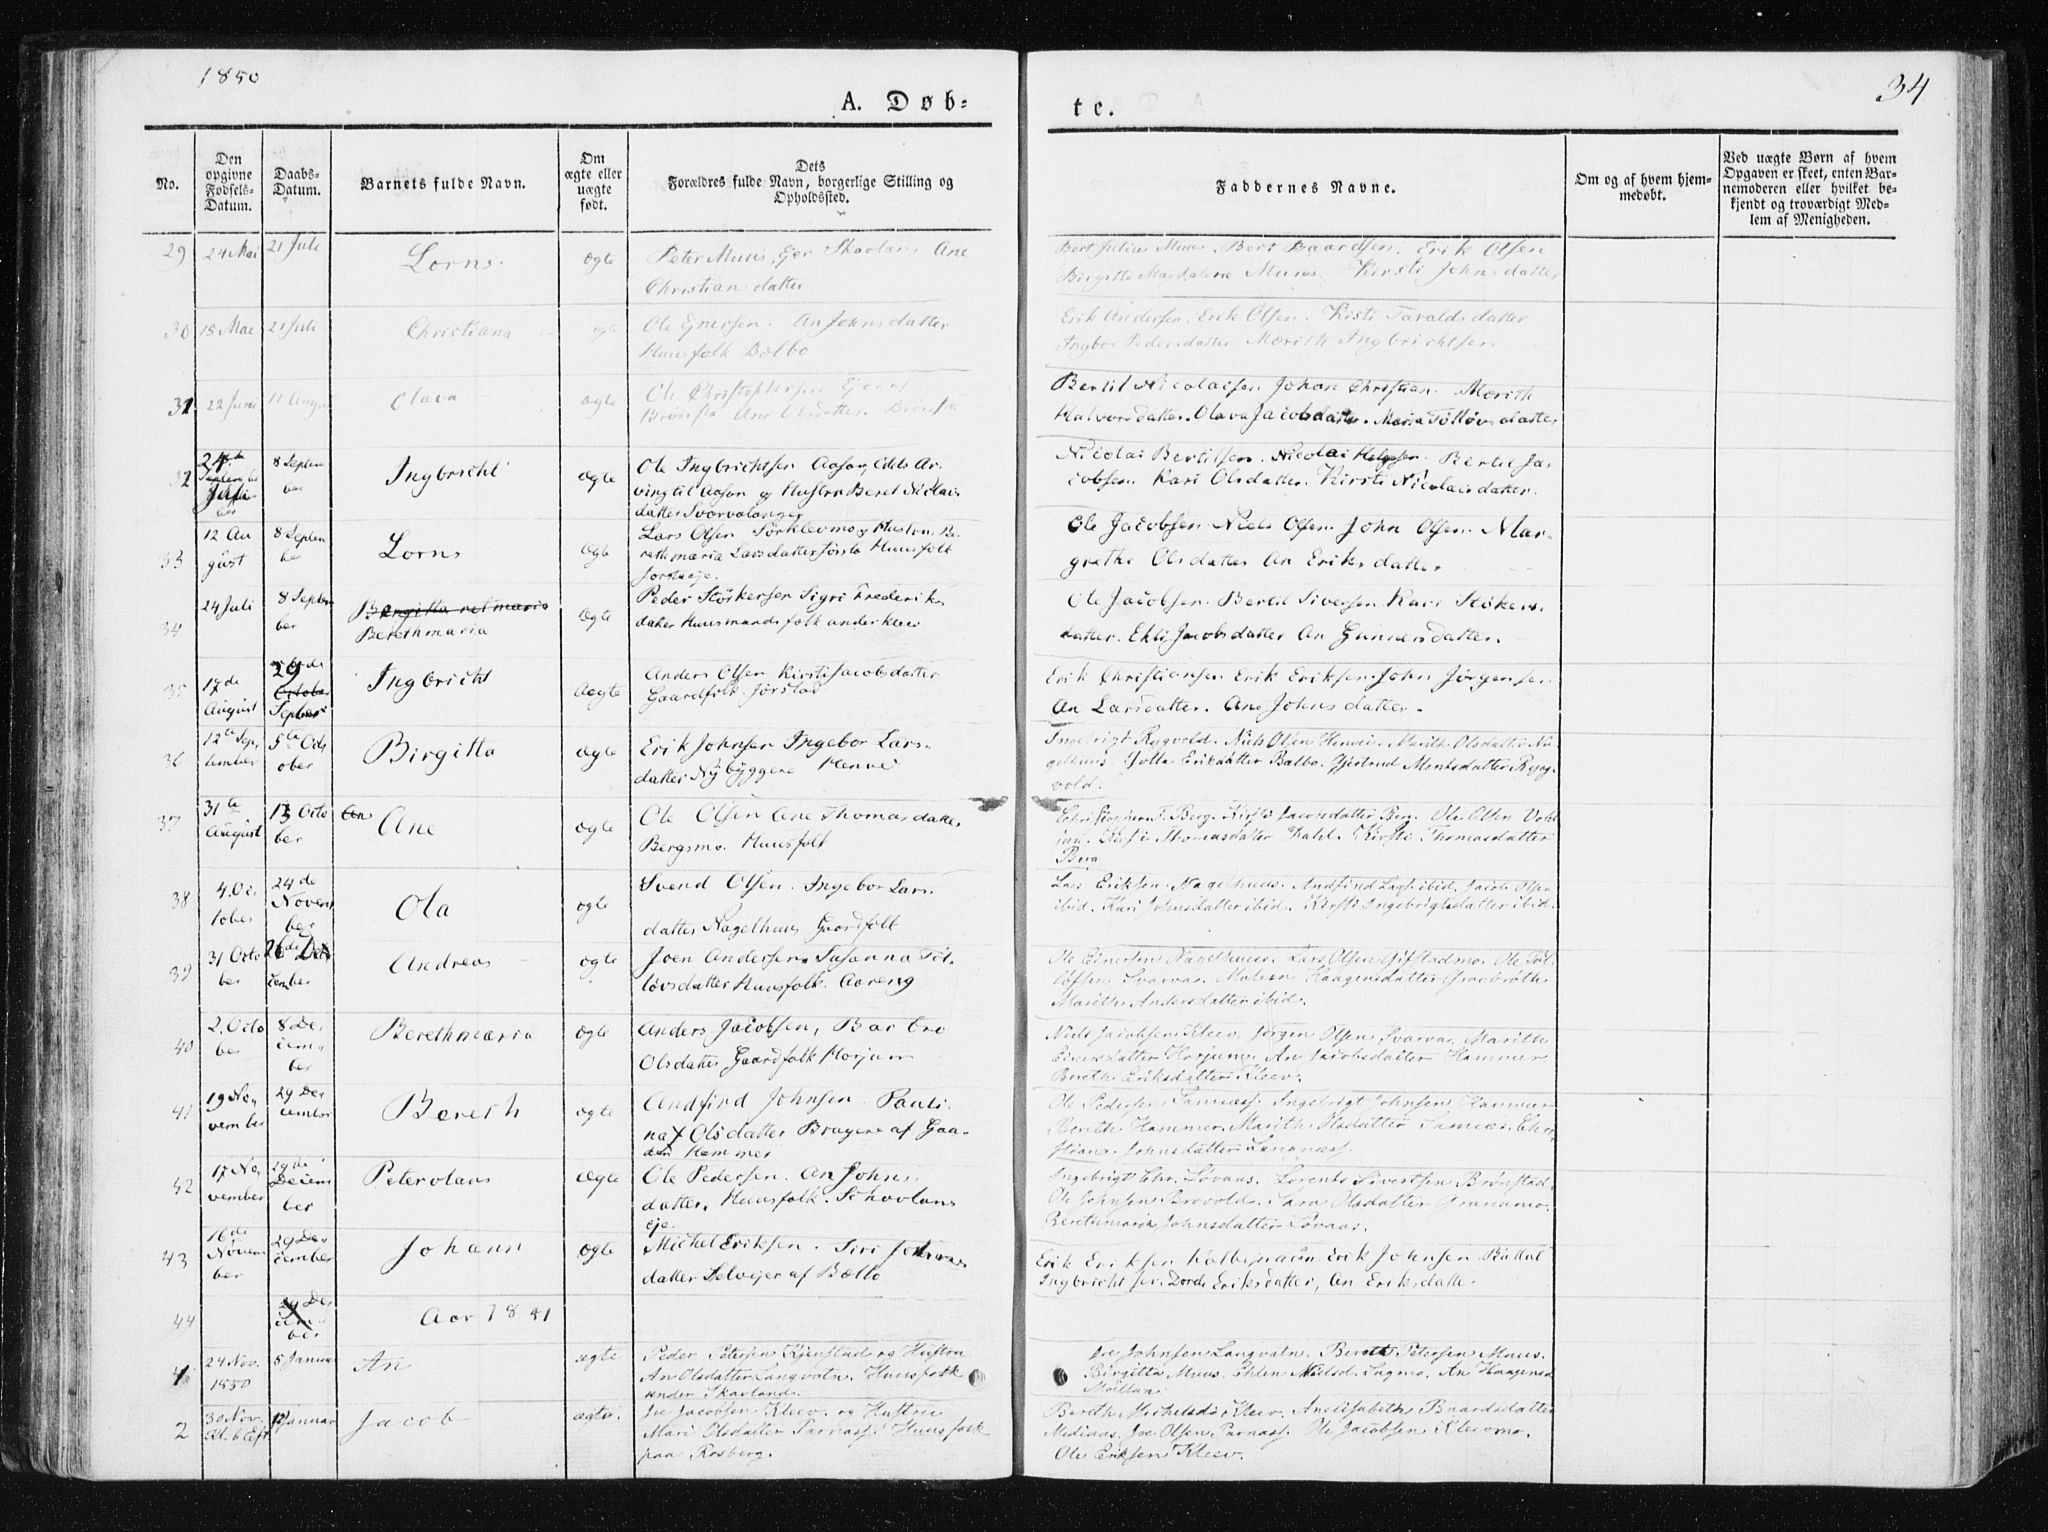 1850
34
A. Døb=
te.
No.
Den opgivne Fødsels-Datum.
Daabs-Datum.
Barnets fulde Navn.
Om ægte eller uægte født.
Dets Forældres fulde Navn, borgerlige Stilling og Opholdssted.
Faddernes Navne.
Om og af hvem hjemmedøbt.
Ved uægte Børn af hvem Opgaven er skeet, enten Barnemoderen eller hvilket bekjendt og troværdigt Medlem af Menigheden.
29 24 Mai 21 Juli Lorns. ægte Peter Muus, Ejer Skavlan Ane
Christiansdatter
Muus. Bert Baardsen. Erik Olsen
Birgitte Magdalene Muus. Kirsti Johnsdatter
30 18 Mai 21 Juli Christiana ægte Ole Ejnersen. An Johnsdatter
Huusfolk Bælbo
Erik Andersen. Erik Olsen. Kisti Taraldsdatter
Ingbor Pedersdatter Morith Ingbrichtsen.
31 22 Juni 11 Olava ægte Ole Christophersen
Ane Olsdatter.
Bertil Nicolaisen Johan Christian. Morith
Halvorsdatter. Olava Jacobsdatter. Maria Tölløvsdatter
32 8 Septem
ber Ingbricht ægte Ole Ingbrichtsen Aason,
til Aason og Hustru Beret Nicolais
datter
Nicolai Bertilsen. Nicolai Helgesen. Bertil Ja-
cobsen. Kari Olsdatter. Kirsti Nicolaisdatter.
33 12 Au
gust 8 Septem
be Lorns ægte Lars Olsen og Hustru. Be-
rethmaria Larsdatter Huusfolk
Ole Jacobsen. Niels Olsen. John Olsen. Mar-
grethe Olsdatter An Eriksdatter.
34 24 Juli 8 Septem
ber Berethmaria ægte Peder Störkersen Sigri Frederiks
datter Huusmandsfolk under Kleiv
Ole Jacobsen. Bertil Siversen Kari Stökers.
datter. Ehli Jacobsdatter An Gunersdatter.
35 17de
August 29
October
September Ingbricht ægte Anders Olsen Kirsti Jacobsdatter
Gaardfolk. Jörstad
Erik Christiansen Erik Eriksen. John Jörgensen.
An Larsdatter. Ane Johnsdatter.
36 12te Sep,
tember 5te Oct
ober Birgitta ægte Erik Johnsen Ingebor Lars-
datter Nybyggere
Ingebrigt Rygvold. Niels Olsen Marith Olsdatter Na-
gelhuus. Eriksdatter Bælbo. Gjertrud Mentsdatter Ryg-
vold.
37 31te
August 13 Octo
ber An Ane ægte Ole Olsen Ane Thomasdatter
Bergsmo. Huusfolk
Christopher T. Berg. Kirsti Jacobsdatter Berg. Ole Olsen
Thomasdatter Dahl. Kirsti Thomasdatter
Berg
38 4. Oc
tober 24de
Novem
ber Ola ægte Svend Olsen. Ingebor Lars.
datter Nagelhuus Gaardfolk
Lars Eriksen. Nagelhuus. Andfind Lars. ibid. Jacob Olsen
ibid. Kari Johnsdatter ibid. Kirsti Ingebrigtsdatter ibid.
39 31 Octo
ber 26de De
cember Andreas ægte Joen Andersen Susanna Töl-
lövsdatter Huusfolk. Aareng
Ole Einersen Nagelhuus. Lars Olsen Gifstadmo. Ole Töl-
löfsen Svarva. Haagensdatter
Marith Andersdatter ibid.
40 2. Octo
ber 8 De-
cem-
ber Berethmaria ægte Anders Jacobsen, Barbro
Olsdatter Gaardfolk Horjum
Niels Jacobsen Kleev. Jørgen Olsen Svarva. Marith
Einersdatter Horjum. An Jacobsdatter Hammer
Bereth Eriksdatter Kleev.
41 19 No,
vember 29 De
cember Bereth ægte Andfind Johnsen. Pauli-
na Olsdatter Brugere af Gaa-
den Hammer
Ole Pedersen. Ingebrigt Johnsen Hammer
Bereth Hammer. Marith Olsdatter Chri-
stiana Johnsdatter
42 17 No,
vember 29de
Decem
ber Peterolaus ægte Ole Pedersen. An Johns.
datter. Huusfolk. Schavlans
eje.
Ingebrigt Chr. Løvaas. Lorents Sivertsen Brønstad.
Ole Johnsen Sara Olsdatter Granamo.
Berethmaria Johnsdatter Løvaas.
43 16de
Novem
ber 29 De
cember Johann ægte Michel Eriksen. Siri Johns
datter Selvejer af Bælbo
Erik Eriksen Erik Johnsen
Ingbrichtsen. Dorde Eriksdatter, An Eriksdatter
44 29 De
cem-
ber Aar 1851
1 24 Nov.
1850 5 Januar An ægte Peder Petersen Kjenstad og Hustru
An Olsdatter Langvatn. Huusfolk
under Skavland.
Joe Johnsen Langvatn. Bereth Petersen Muus.
Birgitta Muus. Ehlen Nielsd. Lagmo. An Haagensd.
2 30 Nov.
Kl. 6 Eft Januar Jacob ægte. Joe Jacobsen Kleev. og Hustrue
Mari Olsdatter Parnass. Huusfolk
paa Rosberg.
Bereth Michelsd. Kleev. Anelisabeth Baardsdatter
Mediaas. Joe Olsen. Parnass. Ole Jacobsen Kleevmo.
Ole Eriksen Kleev.